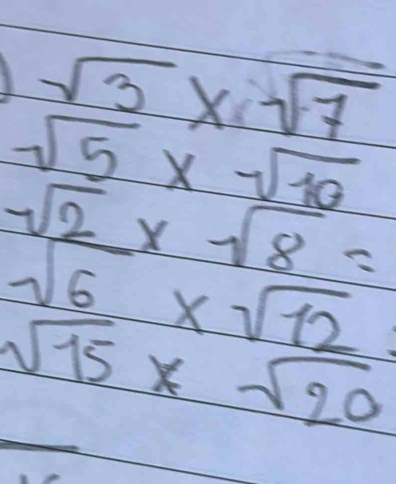 ) √3 × √7
√5 × √10
√2 × √8 =
√6 × √12
√15 × √20